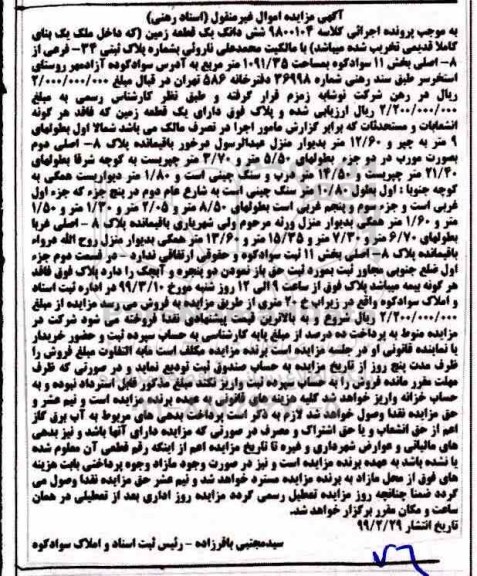 آگهی مزایده اموال غیرمنقول (اسناد رهنی)
به موجب پرونده اجرائی کلاسه ۹۸۰۰۱۰۴ شش دانگ یک قطعه زمین (که داخل ملک یک بنای
کاملا قدیمی تخریب شده میباشد) با مالکیت محمدعلی نارونی بشماره پلاک ثبتی ۳۴- فرعی از
۸- اصلی بخش ۱۱ سوادکوه بمساحت ۱۰۹۱/۳۵ متر مربع به آدرس سوادکوه آزادمهر روستای
استخرسر طبق سند رهنی شماره ۳۶۹۹۸ دفترخانه ۵۸۶ تهران در قبال مبلغ ۲/۰۰۰/۰۰۰/۰۰۰
ریال در رهن شرکت نوشابه زمزم قرار گرفته و طبق نظر کارشناس رسمی به مبلغ
۲/۲۰۰/۰۰۰/۰۰۰ ریال ارزیابی شده و پلاک فوق دارای یک قطعه زمین که فاقد هر گونه
انشعابات و مستحدثات که برابر گزارش مامور اجرا در تصرف مالک می باشد شمالا اول بطولهای
۹ متر به چپر و ۱۲/۶۰ متر بدیوار منزل عبدالرسول درخور باقیمانده پلاک ۸- اصلی دوم
بصورت مورب در دو جزء بطولهای ۵/۵۰ متر و ۳/۷۰ متر چپریست به کوچه شرقا بطولهای
۲۱/۳۰ متر چپریست و ۱۴/۵۰ متر درب و سنگ چینی است و ۱/۸۰ متر دیواریست همگی به
کوچه جنوبا : اول بطول ۱۰/۸۰ متر سنگ چینی است به شارع عام دوم در پنج جزء که جزء اول
غربی است و جزء سوم و پنجم غربی است بطولهای ۸/۵۰ متر و ۲/۰۵ متر و ۱/۳۰ متر و ۱/۵۰
متر و ۱/۶۰ متر همگی بدیوار منزل ورثه مرحوم ولی شهریاری باقیمانده پلاک ۸- اصلی غربا
بطولهای ۶/۷۰ متر و ۷/۳۰ متر و ۱۵/۳۵ متر و ۱۳/۶۰ متر همگی بدیوار منزل روح الله درواه
باقیمانده پلاک ۸- اصلی بخش ۱۱ ثبت سوادکوه و حقوقی ارتفاقی ندارد - در قسمت دوم جزء
اول ضلع جنوبی مجاور ثبت بمورد ثبت حق باز نمودن دو پنجره و آبچک را دارد پلاک فوق فاقد
هر گونه بیمه میباشد پلاک فوق از ساعت ۹ الی ۱۲ روز شنبه مورخ ۹۹/۳/۱۰ در اداره ثبت اسناد
و املاک سوادکوه واقع در زیراب خ ۲۰ متری از طریق مزایده به فروش می رسد مزایده از مبلغ
۲/۲۰۰/۰۰۰/۰۰۰ ریال شروع و به بالاترین قیمت پیشنهادی نقدا فروخته می شود شرکت در
مزایده منوط به پرداخت ده درصد از مبلغ پایه کارشناسی به حساب سپرده ثبت و حضور خریدار
یا نماینده قانونی او در جلسه مزایده است برنده مزایده مکلف است مابه التفاوت مبلغ فروش را
ظرف مدت پنج روز از تاریخ مزایده به حساب صندوق ثبت تودیع نماید و در صورتی که ظرف
مهلت مقرر مانده فروش را به حساب سپرده ثبت واریز نکند مبلغ مذکور قابل استرداد نبوده و به
حساب خزانه واریز خواهد شد کلیه هزینه های قانونی به عهده برنده مزایده است و نیم عشر و
حق مزایده نقدا وصول خواهد شد لازم به ذکر است پرداخت بدهی های مربوط به آب برق گاز
اعم از حق انشعاب و یا حق اشتراک و مصرف در صورتی که مزایده دارای آنها باشد و نیز بدهی
های مالیاتی و عوارض شهرداری و غیره تا تاریخ مزایده اعم از اینکه رقم قطعی آن معلوم شده
یا نشده باشد به عهده برنده مزایده است و نیز در صورت وجود مازاد وجوه پرداختی بابت هزینه
های فوق از محل مازاد به برنده مزایده مسترد خواهد شد و نیم عشر حق مزایده نقدا وصول می
گردد ضمنا چنانچه روز مزایده تعطیل رسمی گردد مزایده روز اداری بعد از تعطیلی در همان
ساعت و مکان مقرر برگزار خواهد شد.
تاریخ انتشار ۹۹/۲/۲۹
سیدمجتبی باقرزاده - رئیس ثبت اسناد و املاک سوادکوه